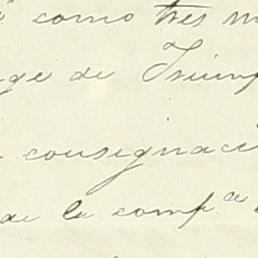 como tres
de Triunf
consignaci
de la comp.ª